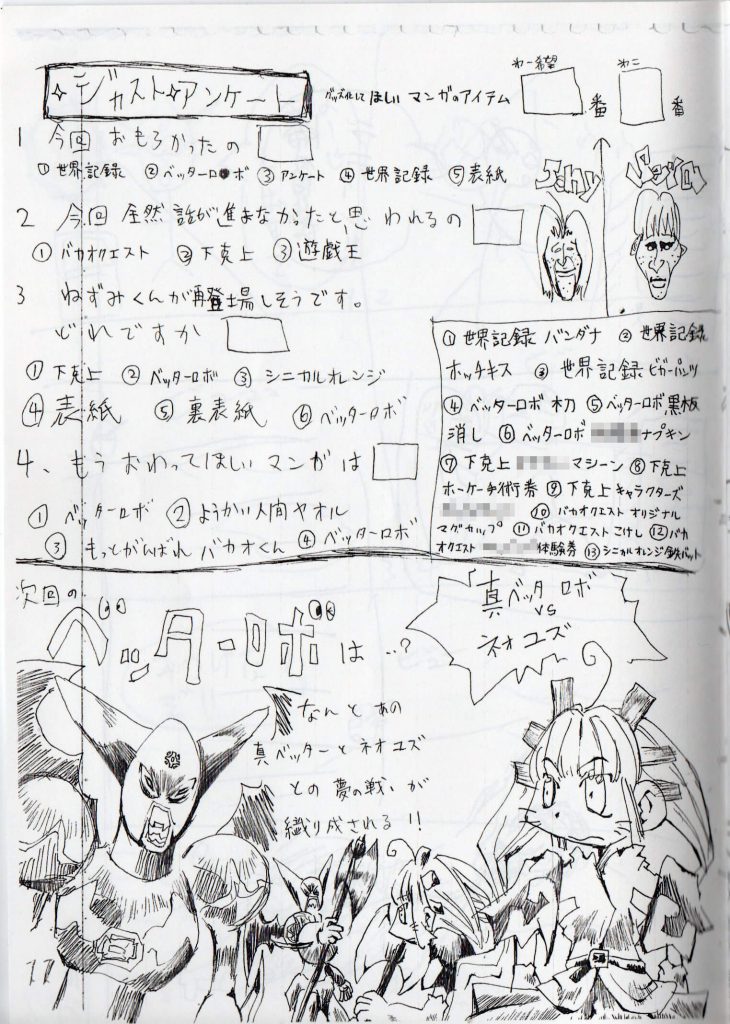 ジャスト☆アンケート
グッズ化してほしいマンガのアイテム
番
番
1 今回おもろかったの
①世界記録 ②ベッターロボ ③アンケート ④世界記録 ⑤表紙
2 今回全然話が進まなかったと思われるの
①バカオクエスト ②下克上 ③遊戯王
3 ねずみくんが再登場しそうです。
どれですか
①下克上 ②ベッターロボ ③シニカルオレンジ
④表紙 ⑤裏表紙 ⑥ベッターロボ
4、もうおわってほしいマンガは
①ベッターロボ ②ようかい人間ヤオル
③もっとがんばれバカオくん ④ベッターロボ
①世界記録バンダナ ②世界記録
ホッチキス ③世界記録ビガーパンツ
④ベッターロボ ⑤ベッターロボ黒板
消し ⑥ベッターロボ ナプキン
⑦下克上 マシーン ⑧下克上
ホーケー手術券 ⑨下克上キャラクターズ
⑩バカオクエストオリジナル
マグカップ ⑪バカオクエストこけし ⑫バカ
オクエスト 体験券 ⑬シニカルオレンジ鉄バット
次回の
ベッターロボは…?
真ベッターロボ
VS
ネオユズ
なんとあの
真ベッターとネオユズ
との夢の戦いが
織り成される!!